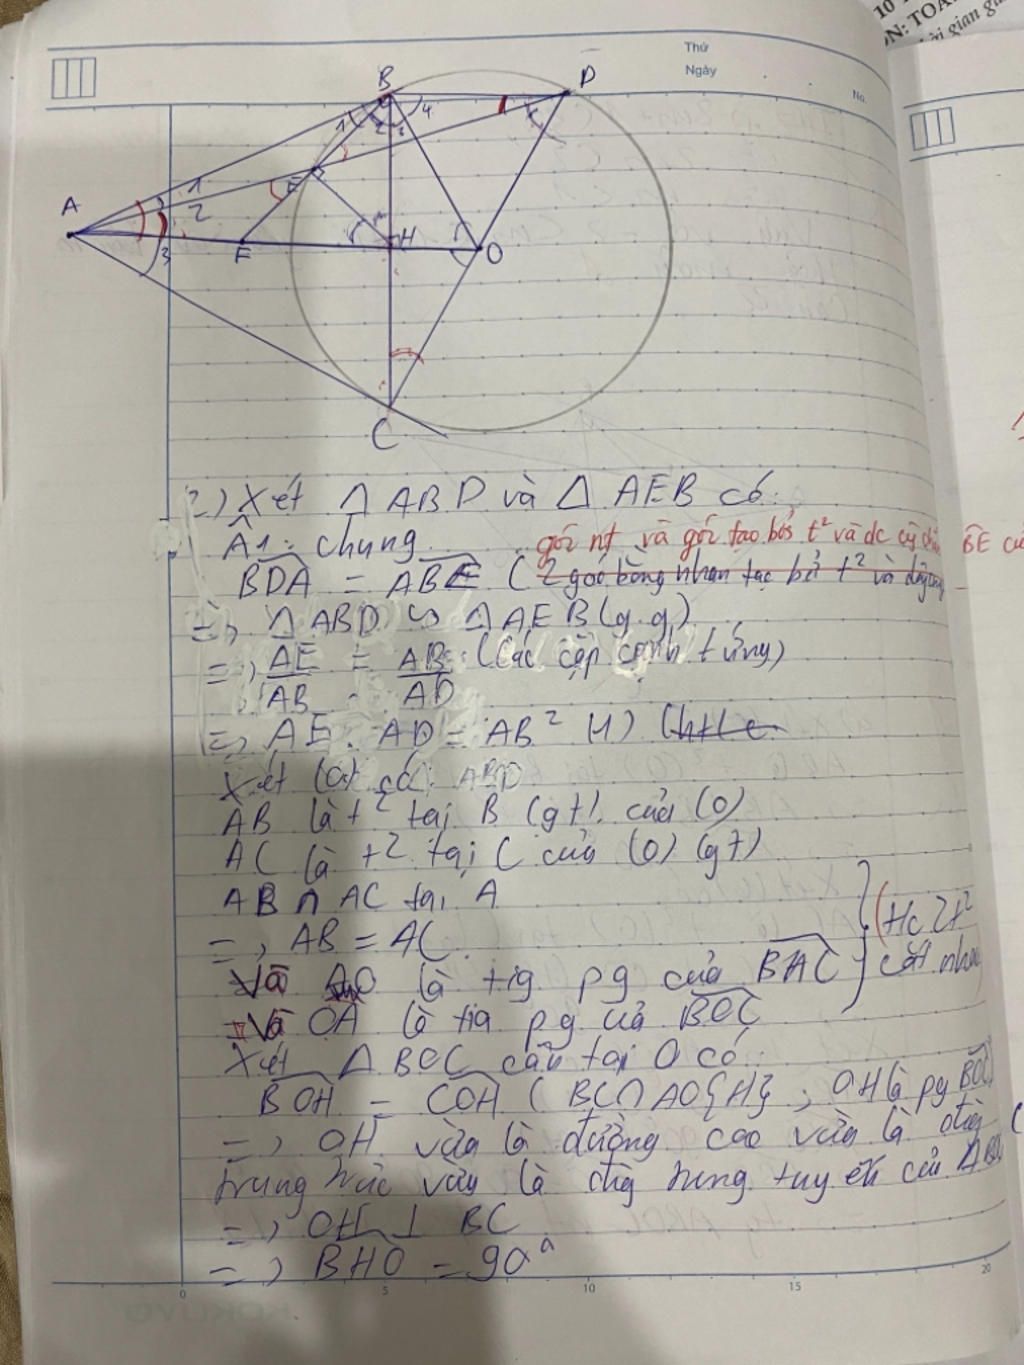 10
ÔN: TOÁ
Thời gian gi
Thứ
Ngày
No.
B
D
1
2
3
4
1
A
1
2
3
E
F
H
O
C
2) Xét Δ ABD và Δ AEB có:
Â1: chung
góc nt và góc tạo bởi t² và dc cùng chắn BE củ
BDA = ABE (2 góc bằng nhau tạc bởi t² và dây cung
=> Δ ABD ∽ Δ AEB (g.g)
=> AE/AB = AB/AD (các cặp cạnh tứng)
=> AE . AD = AB² (1) (htl c
Xét (O) có: ABD
AB là t² tại B (gt) của (O)
AC là t² tại C của (O) (gt)
AB ∩ AC tại A
=> AB = AC
Và AO là tig pg của BAC
(Hc 2t² cắt nhau)
Và OA là tia pg củả BOC
Xét Δ BOC cân tại O có:
BOH = COH ( BC∩AO{H} ; OH là pg BOC)
=> OH vừa là đường cao vừa là đtig
trung trực vừa là đtig trung tuyến của ΔBOC
=> OH ⊥ BC
=> BHO = 90°
0 5 10 15 20
KOKUYO